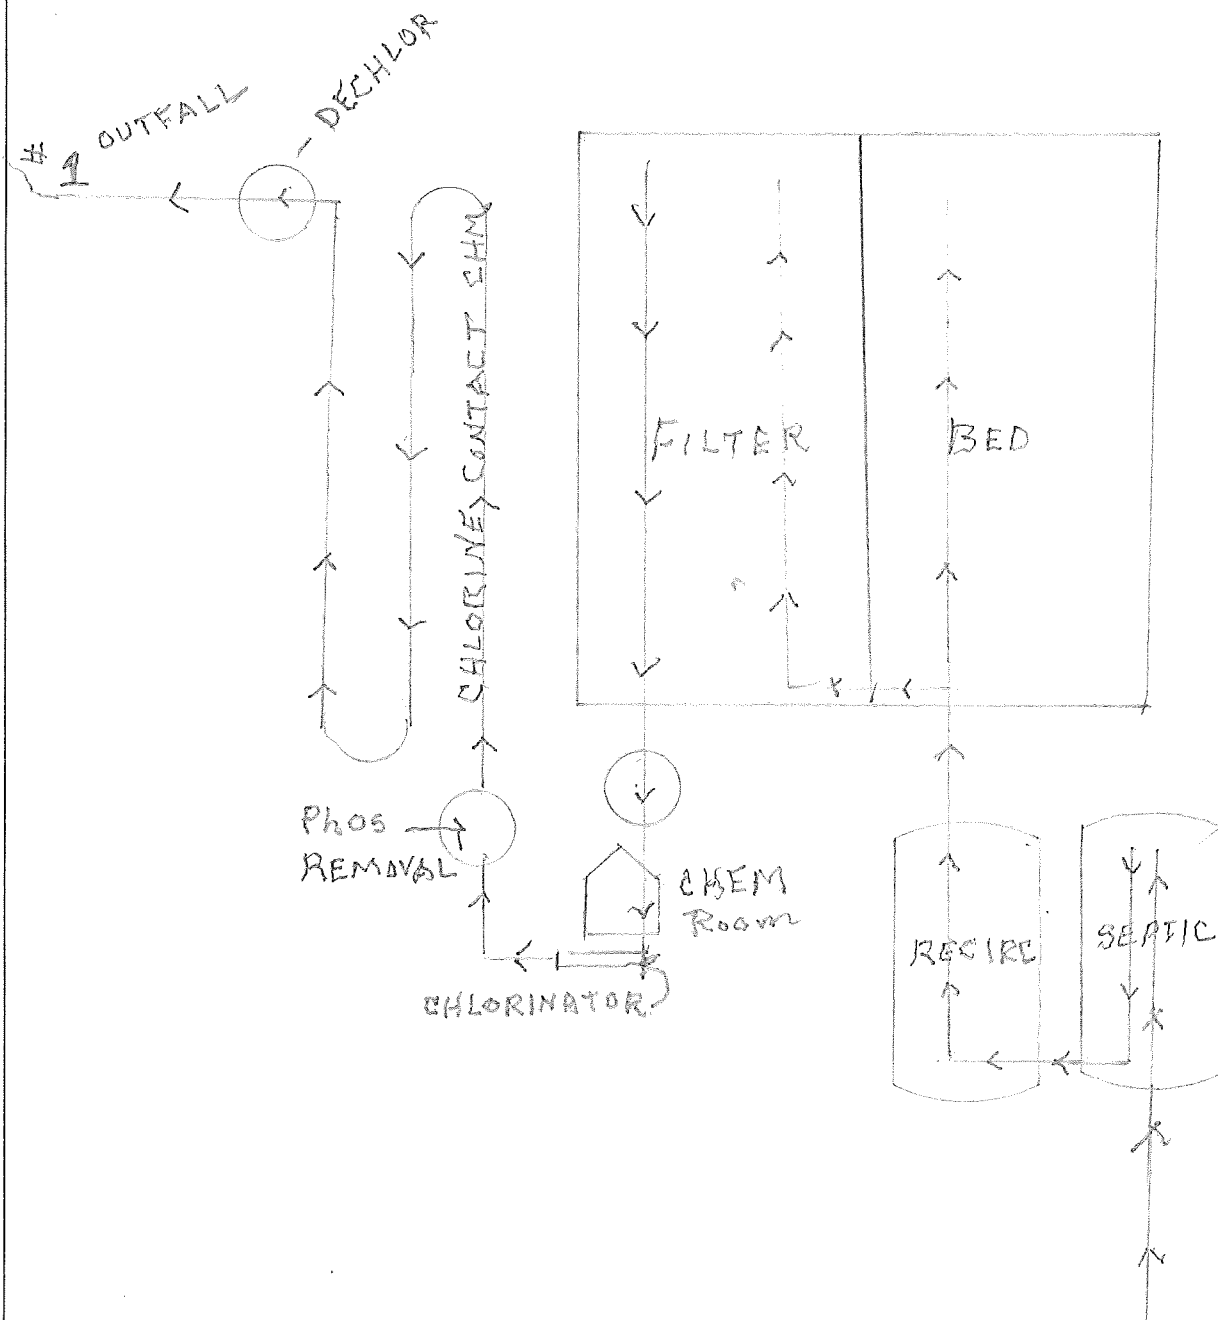 DECHLOR
# 1 OUTFALL
CHLORINE CONTACT CHM
FILTER BED
Phos
REMOVAL
CHEM
Room
CHLORINATOR
RECIRC
SEPTIC